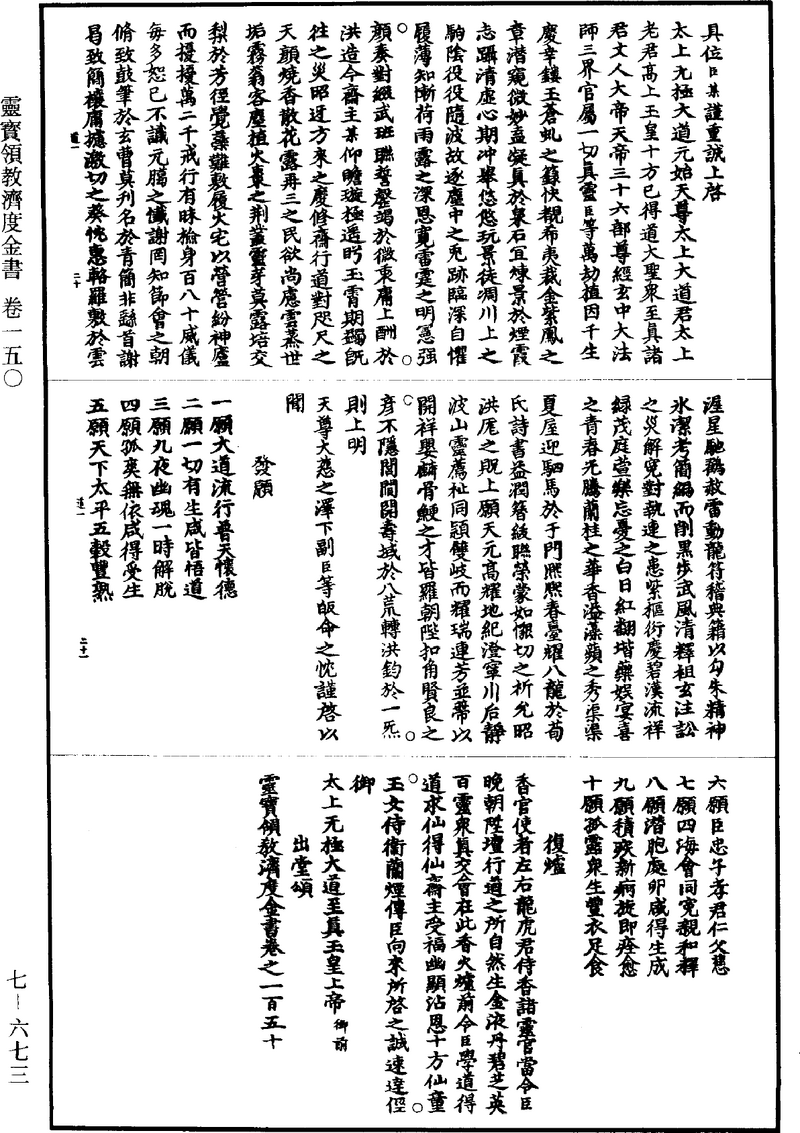 具位臣某謹重誠上啓
太上无極大道元始天尊太上大道君太上
老君高上玉皇十方已得道大聖衆至真諸
君丈人大帝天帝三十六部尊經玄中大法
師三界官屬一切真靈臣等萬劫植因千生
慶幸鏤玉蒼虬之篆快覩希夷裁金紫鳳之
章潛窺微妙盍凝真於泉石宜煉景於煙霞
志躡清虛心期冲舉悠悠玩景徒凋川上之
駒陰役役隨波故逐塵中之兎跡臨深自懼
履薄知慚荷雨露之深恩寬雷霆之明罰强
顔奏對經武班聯誓罄竭於微衷庸上酬於
洪造今齋主某仰瞻璇極遥盻玉霄期蠲旣
往之災昭迓方來之慶修齋行道對咫尺之
天顔燒香散花露再三之民欲尚慮雲蒸世
垢霧翳客塵植火棗之荆叢靈芽莫露培交
梨於芳徑覺蘂難敷履火宅以營營紛神廬
而擾擾萬二千戒行有昧檢身百八十威儀
每多恕已不識元臈之懺謝罔知節會之朝
脩致鼓筆於玄曹莫刋名於青簡非繇首謝
曷致簡禳庸攄激切之葵忱惠輅羅敷於雲
渥星馳鶴赦雷動龍符稽典籍以勾朱精神
氷潔考簡編而削黑步武風清釋祖玄注訟
之災解寃對執連之患紫樞衍慶碧漢流祥
緑茂庭萱樂忘憂之白日紅翻堦藥娱宴喜
之青春光騰蘭桂之華香溢藻蘋之秀渠渠
夏屋迎駟馬於于門熈熈春臺耀八龍於荀
氏詩書益潤簪紱聯榮蒙如懇切之祈允昭
洪庑之貺上願天元高耀地紀澄寧川后靜
波山靈薦祉同頴雙岐而耀瑞連芳並蔕以
開祥嬰鱗骨鯁之才皆羅朝陛扣角賢良之
彦不隱閭閻開壽域於八荒轉洪鈞於一炁
則上明
天尊大慈之澤下副臣等皈命之忱謹啓以
聞
發願
一願大道流行普天懷德
二願一切有生咸皆悟道
三願九夜幽魂一時解脫
四願孤㷀無依咸得受生
五願天下太平五穀豐熟
六願臣忠子孝君仁父慈
七願四海會同寃親和釋
八願潛胞處卵咸得生成
九願積疾新病旋即痊愈
十願孤露衆生豐衣足食
復爐
香官使者左右龍虎君侍香諸靈官當令臣
晩朝陞壇行道之所自然生金液丹碧芝英
百靈衆真交會在此香火爐前令臣學道得
道求仙得仙齋主受福幽顯沾恩十方仙童
玉女侍衞蘭煙傳臣向來所啓之誠速達徑
御
太上无極大道至真玉皇上帝御前
出堂頌
靈寶領敎濟度金書卷之一百五十
靈寶領教濟度金書 卷一五〇
七－六七三